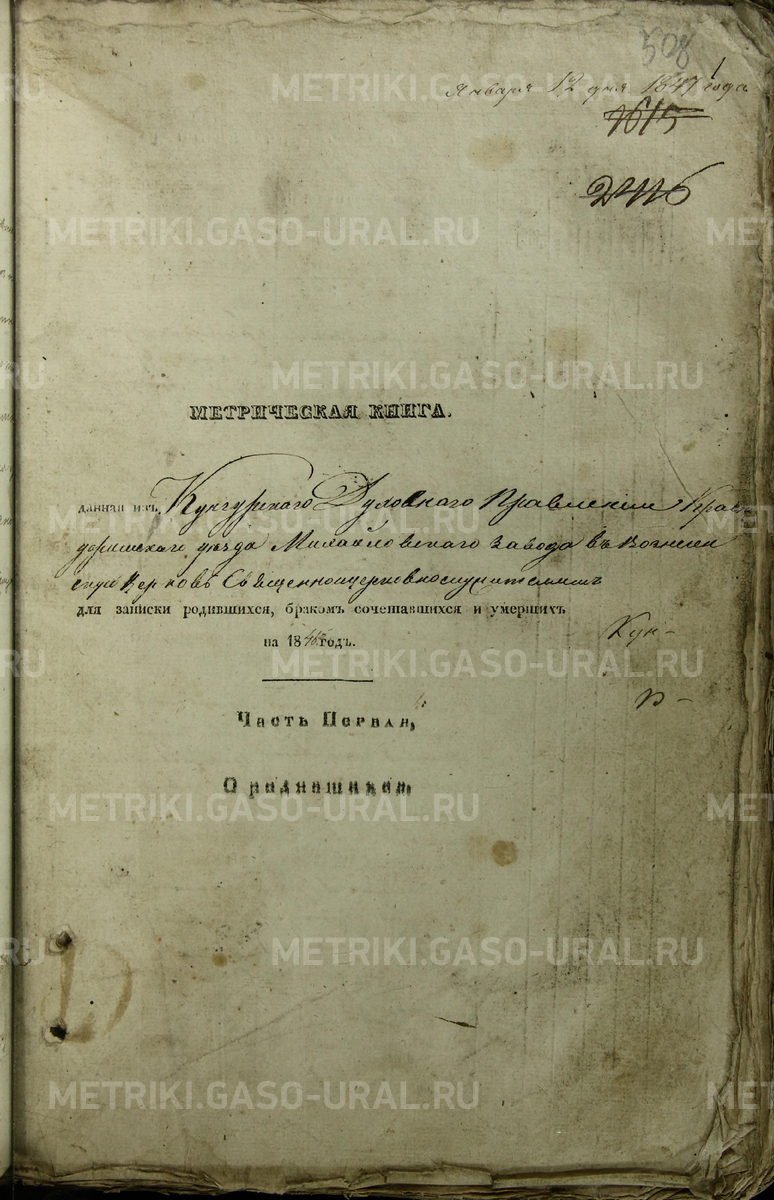 508
1
Января 12 дня 1847 года
1615
2446
МЕТРИЧЕСКАЯ КНИГА.
данная изъ Кунгурскаго Духовнаго Правления Крас-
уфимскаго уѣзда Михайловскаго завода въ Вознесен
скую Церковь Священноцерковнослужителямъ
для записки родившихся, бракомъ сочетавшихся и умершихъ
на 1846 годъ.
Кун-
Часть Первая,
П-
О родившихся,
METRIKI.GASO-URAL.RU